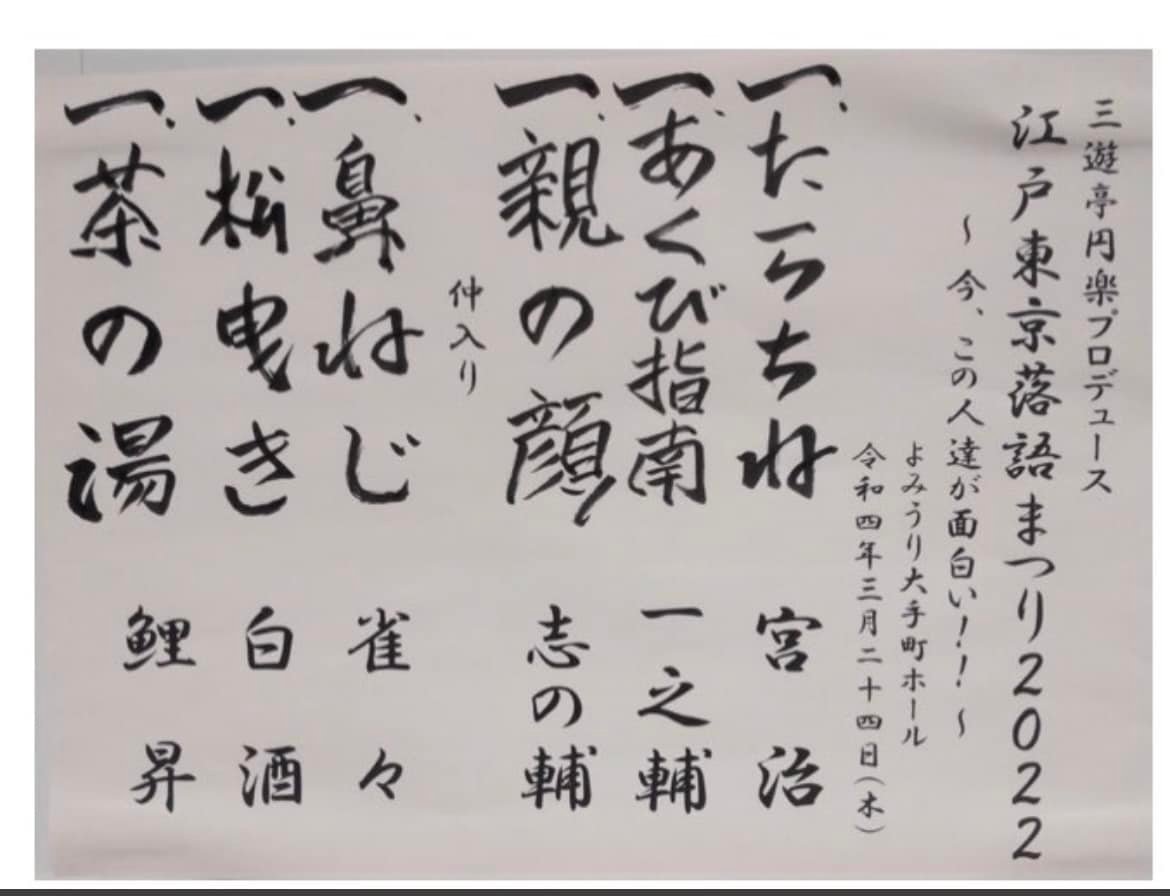 三遊亭円楽プロデュース
江戸東京落語まつり2022
～今、この人達が面白い！！～
よみうり大手町ホール
令和四年三月二十四日(木)
一、たらちね 宮治
一、あくび指南 一之輔
一、親の顔 志の輔
仲入り
一、鼻ねじ 雀々
一、松曳き 白酒
一、茶の湯 鯉昇